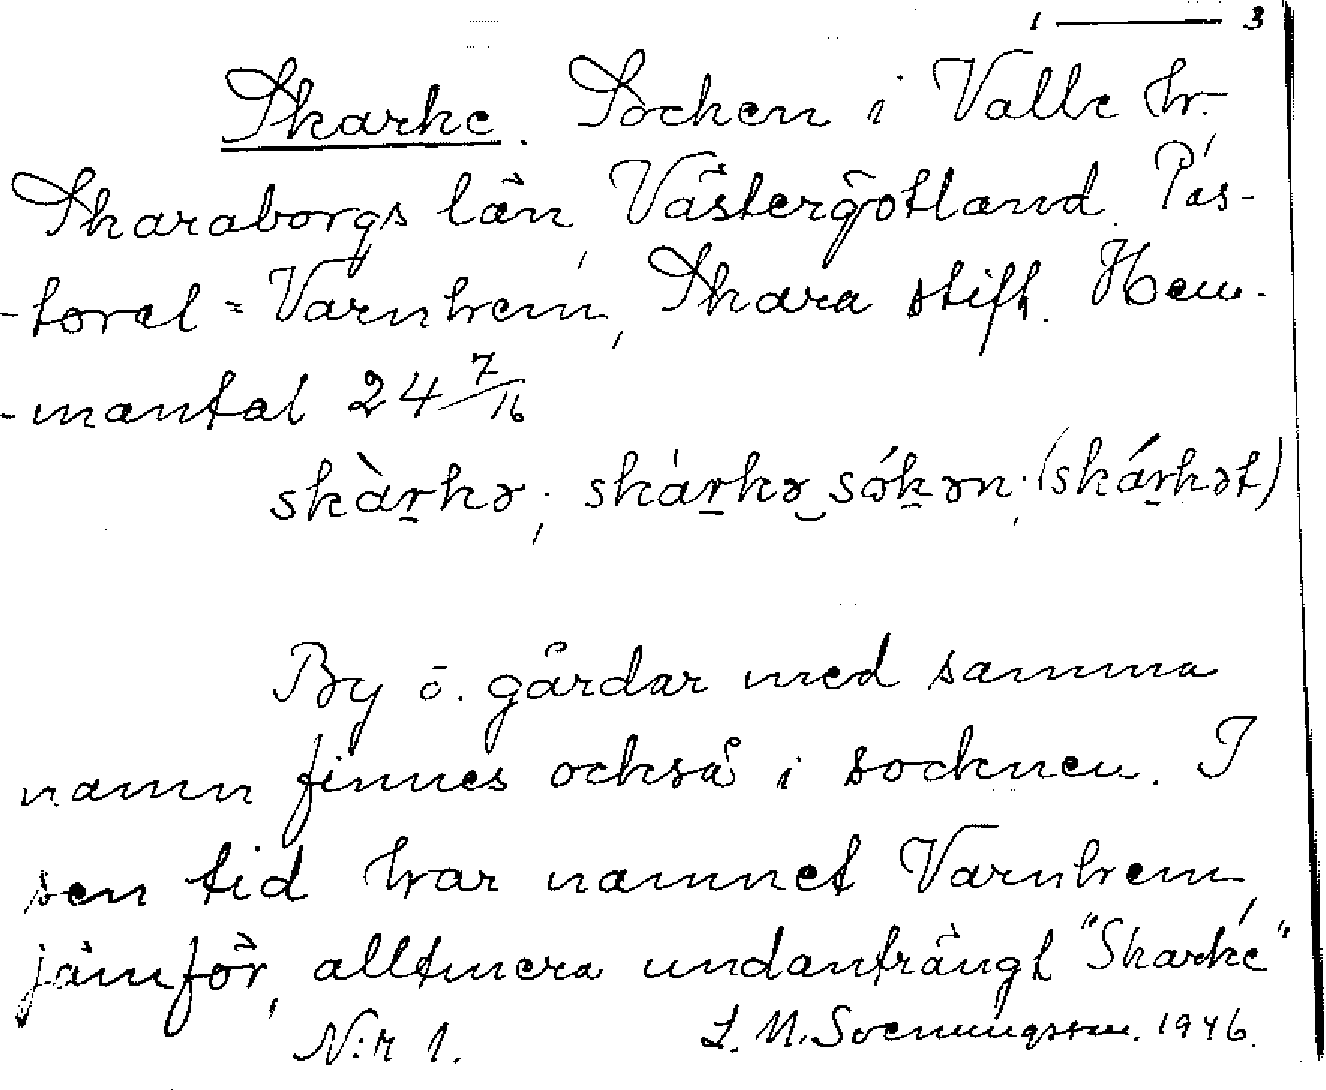 1 ——— 3
Skarke. Socken i Valle hr.
Skaraborgs län, Västergötland. Pas-
-torat = Varnhem, Skara stift. Hem-
-mantal 24 7/16
skàrkə; skàrkə sókən; (skárkət)
By o. gårdar med samma
namn finnes också i socknen. I
sen tid har namnet Varnhem,
jämför, alltmera undanträngt "Skarke"
N:r 1. L. M. Svenungsson. 1946.